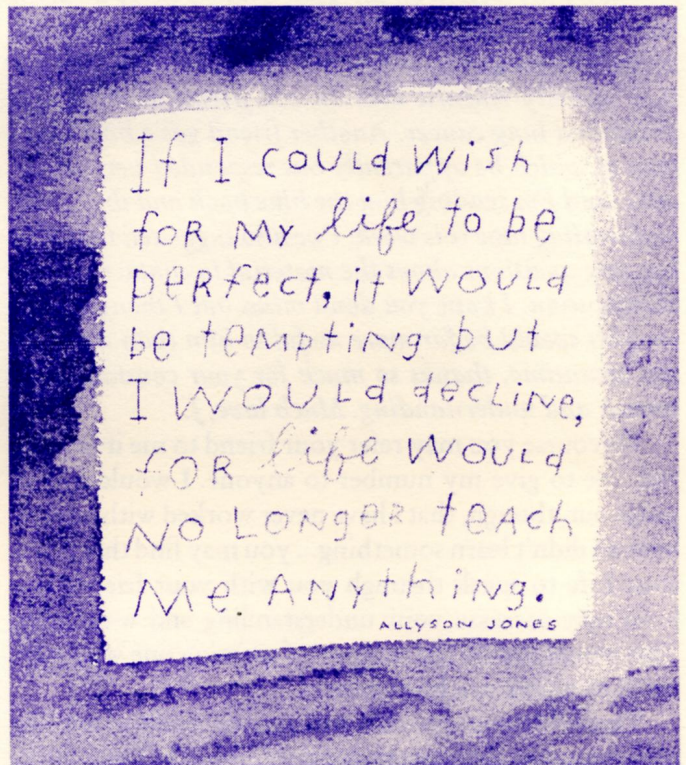 If I could wish
for my life to be
perfect, it would
be tempting but
I would decline,
for life would
no longer teach
me anything.
ALLYSON JONES